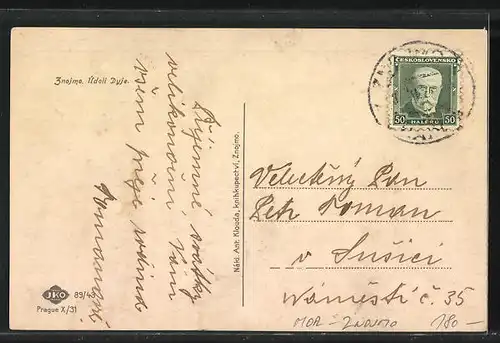 Znojmo. Údolí Dyje.
Příjemné svátky
velikonoční Vám
všem přeje rodina
Nákl. Ant. Klouda, knihkupectví, Znojmo.
JKO
89/49
Prague X/31
ČESKOSLOVENSKO
50 HALÉŘŮ 50
Velectěný Pan
Petr Toman
v Sušici
Náměstí č. 35
MOR - ZNOJMO 180-